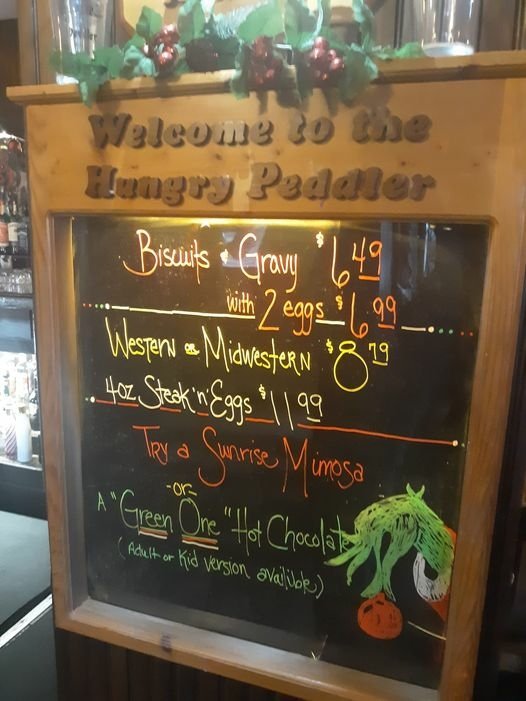 Welcome to the
Hungry Peddler
Biscuits & Gravy $6 49
with 2 eggs $6 99
Western or Midwestern $8 79
4oz Steak 'n' Eggs $11 99
Try a Sunrise Mimosa
-or-
A "Green One" Hot Chocolate
(Adult or Kid version availible)